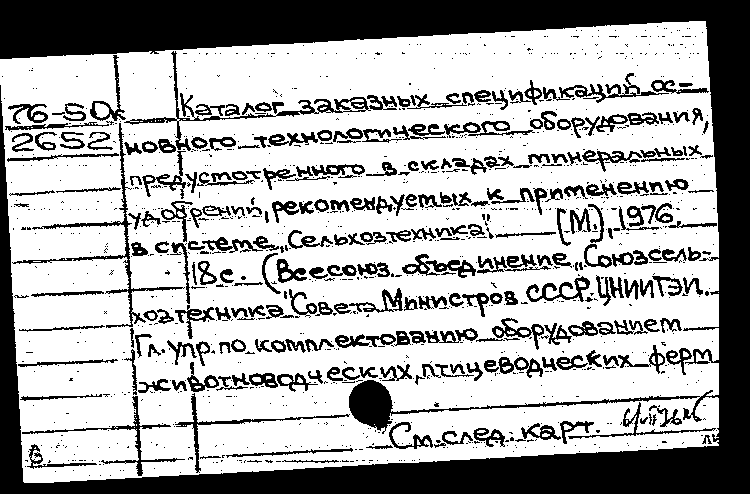 76-50к Каталог заказных спецификаций ос-
2652 новного технологического оборудования,
предусмотренного в складах минеральных
удобрений, рекомендуемых к применению
в системе „Сельхозтехника". [М.], 1976.
18 с. (Всесоюз. объединение „Союзсель-
хозтехника" Совета Министров СССР. ЦНИИТЭИ.
Гл. упр. по комплектованию оборудованием
животноводческих, птицеводческих ферм
См. след. карт.
В